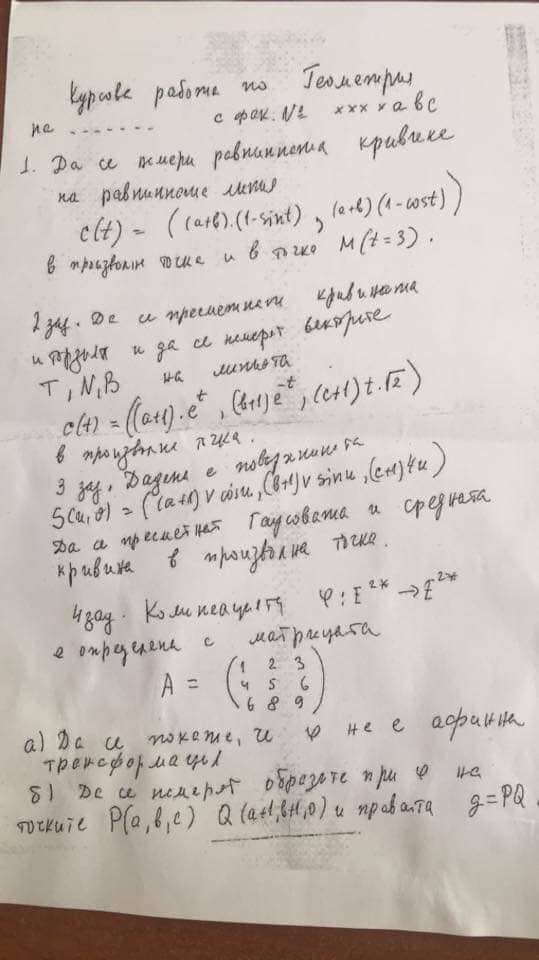 Курсова работа по Геометрия
на ....... с фак. № xxxxabc
1. Да се намери равнинната кривина
на равнинната линия
c(t) = ((a+b).(1-sint), (a+b)(1-cost))
в произволна точка и в точка M(t=3).
2 зад. Да се пресметнат кривината
и торзията и да се намерят векторите
T, N, B на линията
c(t) = ((a+1).e^t, (b+1)e^-t, (c+1)t.√2)
в произволна точка.
3 зад. Дадена е повърхнината
S(u,v) = ((a+1)v cosu, (b+1)v sinu, (c+1)4u)
Да се пресметнат Гаусовата и средната
кривина в произволна точка.
4 зад. Колинеацията φ: E^2* → E^2*
е определена с матрицата
A = (1 2 3
4 5 6
6 8 9)
а) Да се покаже, че φ не е афинна
трансформация
б) Да се намерят образите при φ на
точките P(a,b,c) Q(a+1,b+1,0) и правата g=PQ.